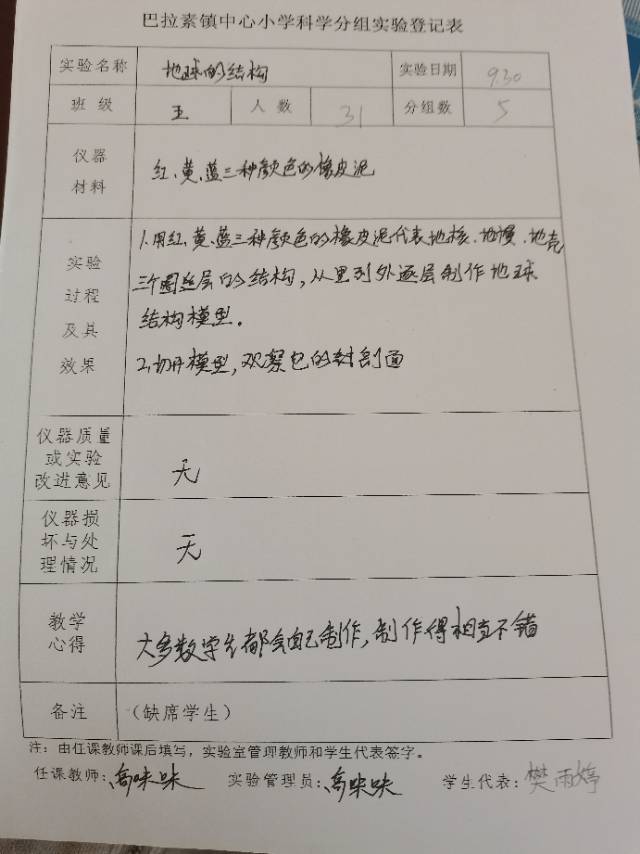 巴拉素镇中心小学科学分组实验登记表
实验名称 地球的结构 实验日期 9.30
班 级 五 人 数 31 分组数 5
仪器
材料
红、黄、蓝三种颜色的橡皮泥
实验
过程
及其
效果
1.用红、黄、蓝三种颜色的橡皮泥代表地核、地幔、地壳
三个圈层的结构，从里到外逐层制作地球
结构模型。
2.切开模型，观察它的剖面
仪器质量
或实验
改进意见
无
仪器损
坏与处
理情况
无
教学
心得
大多数学生都会自己制作，制作得相当不错
备注 （缺席学生）
注：由任课教师课后填写，实验室管理教师和学生代表签字。
任课教师：高咪咪 实验管理员：高咪咪 学生代表：樊雨婷